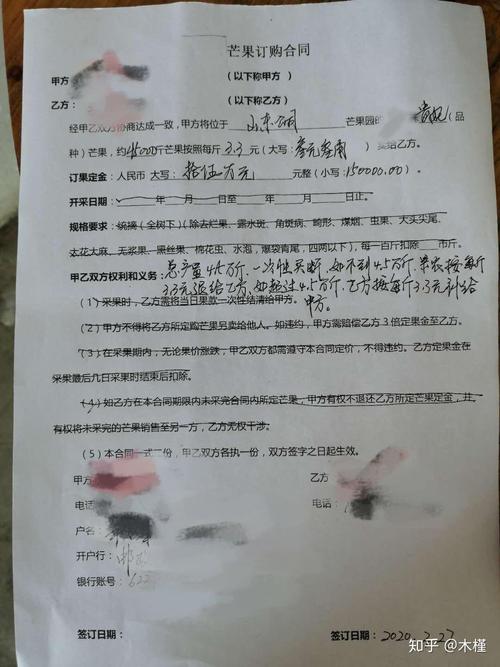 芒果订购合同
甲方 （以下称甲方）
乙方： （以下称乙方）
经甲乙双方协商达成一致，甲方将位于 山东 芒果园的 贵妃（品
种）芒果，约45000斤芒果按照每斤3.3元（大写：叁元叁角）卖给乙方。
订果定金：人民币 大写：拾伍万元 元整（小写：150000.00）
开采日期： 年 月 日至 年 月 日止。
规格要求：统摘（全树下）（除去烂果、露水斑、角斑病、畸形、煤烟、虫果、大头头尾、
大花大麻、无浆果、黑丝果、棉花虫、水泡，爆袋青尾，四两以下），每一百斤扣除 市斤。
总产量4.5万斤，一次性买断，如不到4.5万斤，果农按每斤
甲乙双方权利和义务：3.3元退给乙方，如超过4.5万斤，乙方按每斤3.3元补给
甲方。
（1）采果时，乙方需将当日果款一次性结清给甲方。
（2）甲方不得将乙方所定购芒果另卖给他人。如违约，甲方需赔偿乙方3倍定果金至乙方。
（3）在采果期内，无论果价涨跌，甲乙双方都需遵守本合同定价，不得违约。乙方定果金在
采果最后几日采果时结束后扣除。
（4）如乙方在本合同期限内未采完合同内所定芒果，甲方有权不退还乙方所定芒果定金，并
有权将未采完的芒果销售至另一方，乙方无权干涉。
（5）本合同一式二份，甲乙双方各执一份，双方签字之日起生效。
甲方 乙方
电话 电话：
户名：
开户行：
银行账号：622
签订日期： 签订日期：2020.2.27
知乎 @木槿